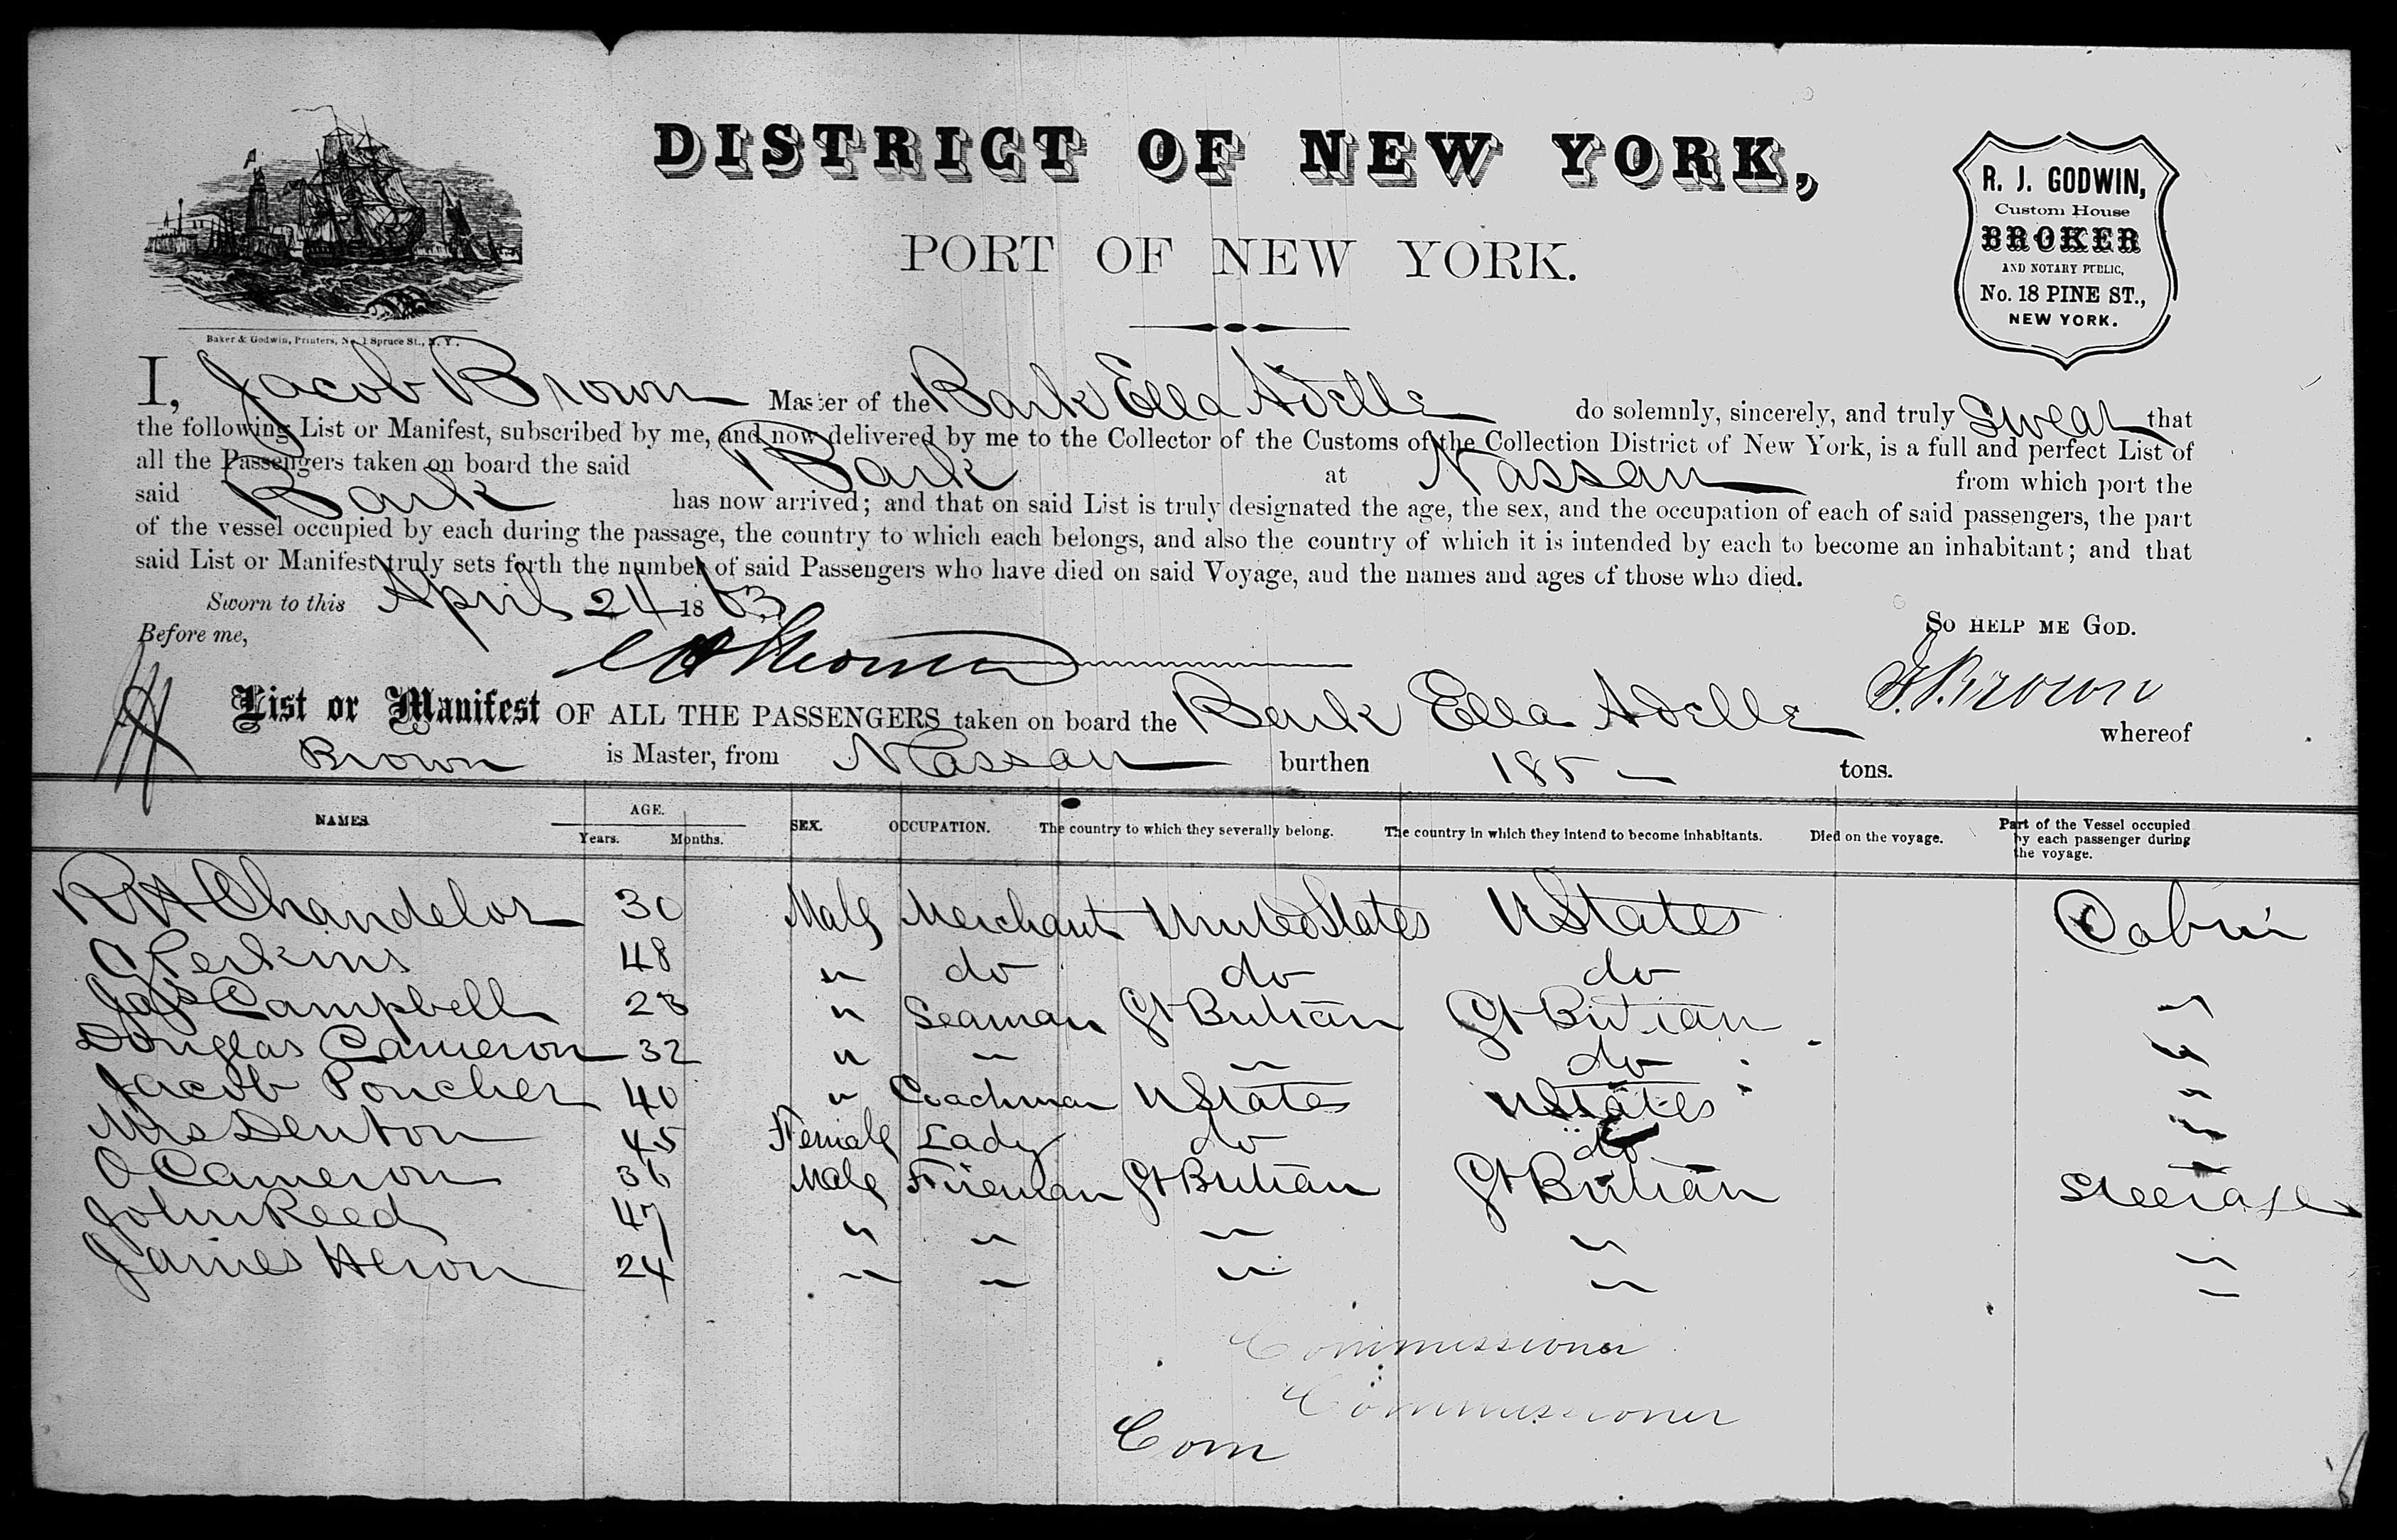 DISTRICT OF NEW YORK,
PORT OF NEW YORK.
R. J. GODWIN,
Custom House
BROKER
AND NOTARY PUBLIC,
No. 18 PINE ST.,
NEW YORK.
Baker & Godwin, Printers, No. 1 Spruce St., N. Y.
I, Jacob Brown Master of the Bark Ella Adelle do solemnly, sincerely, and truly Swear that
the following List or Manifest, subscribed by me, and now delivered by me to the Collector of the Customs of the Collection District of New York, is a full and perfect List of
all the Passengers taken on board the said Bark at Nassau from which port the
said Bark has now arrived; and that on said List is truly designated the age, the sex, and the occupation of each of said passengers, the part
of the vessel occupied by each during the passage, the country to which each belongs, and also the country of which it is intended by each to become an inhabitant; and that
said List or Manifest truly sets forth the number of said Passengers who have died on said Voyage, and the names and ages of those who died.
Sworn to this April 24 1863
So HELP ME GOD.
Before me,
J. Brown
List or Manifest OF ALL THE PASSENGERS taken on board the Bark Ella Adelle whereof
Brown is Master, from Nassau burthen 185 tons.
NAMES AGE. Years. Months. SEX. OCCUPATION. The country to which they severally belong. The country in which they intend to become inhabitants. Died on the voyage. Part of the Vessel occupied by each passenger during the voyage.
R H Chandelor 30 Male Merchant United States U States Cabin
C Perkins 48 " do do do "
Jas Campbell 28 " Seaman Gt Britian Gt Britian "
Douglas Cameron 32 " " " do "
Jacob Poucher 40 " Coachman U States U States "
Mrs Denton 45 Female Lady do do "
O Cameron 36 Male Fireman Gt Britian Gt Britian Steerage
John Reed 47 " " " " "
James Heron 24 " " " " "
Commissioner
Commissioner
Com